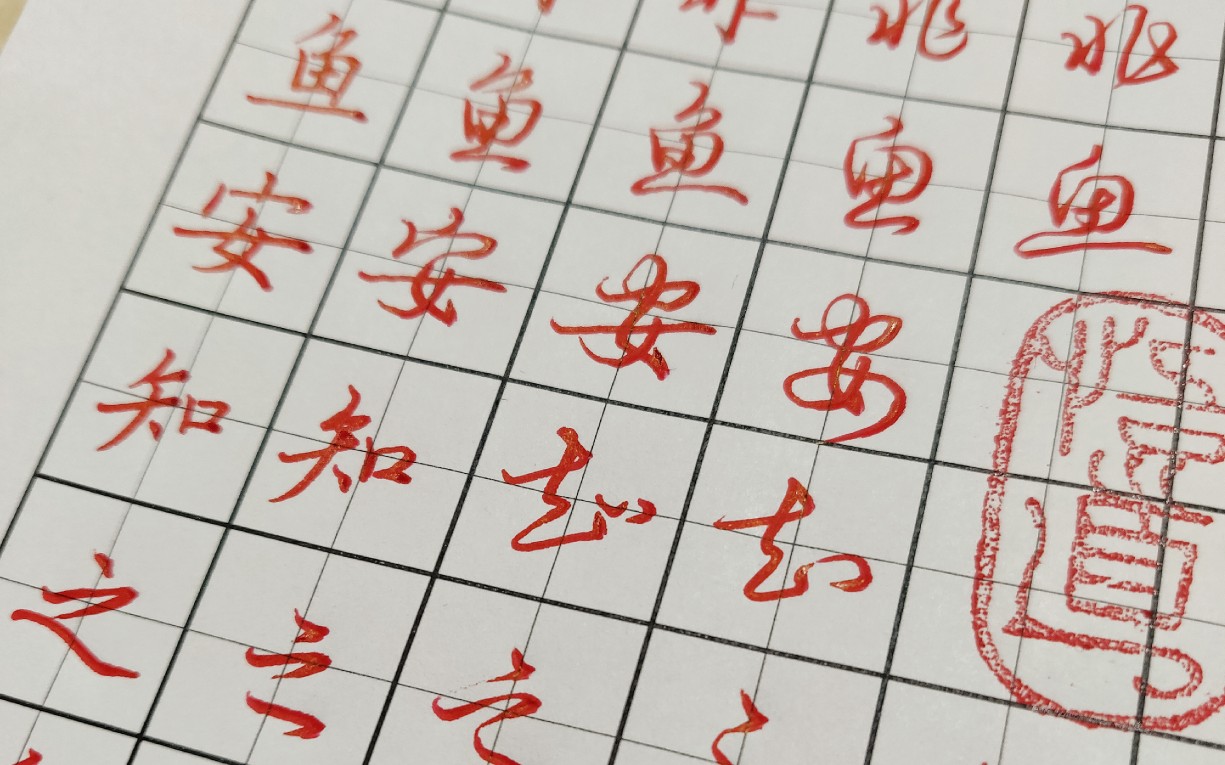 非 非
鱼 鱼 鱼 鱼 鱼
安 安 安 安
知 知 知 知
之 之 之 之